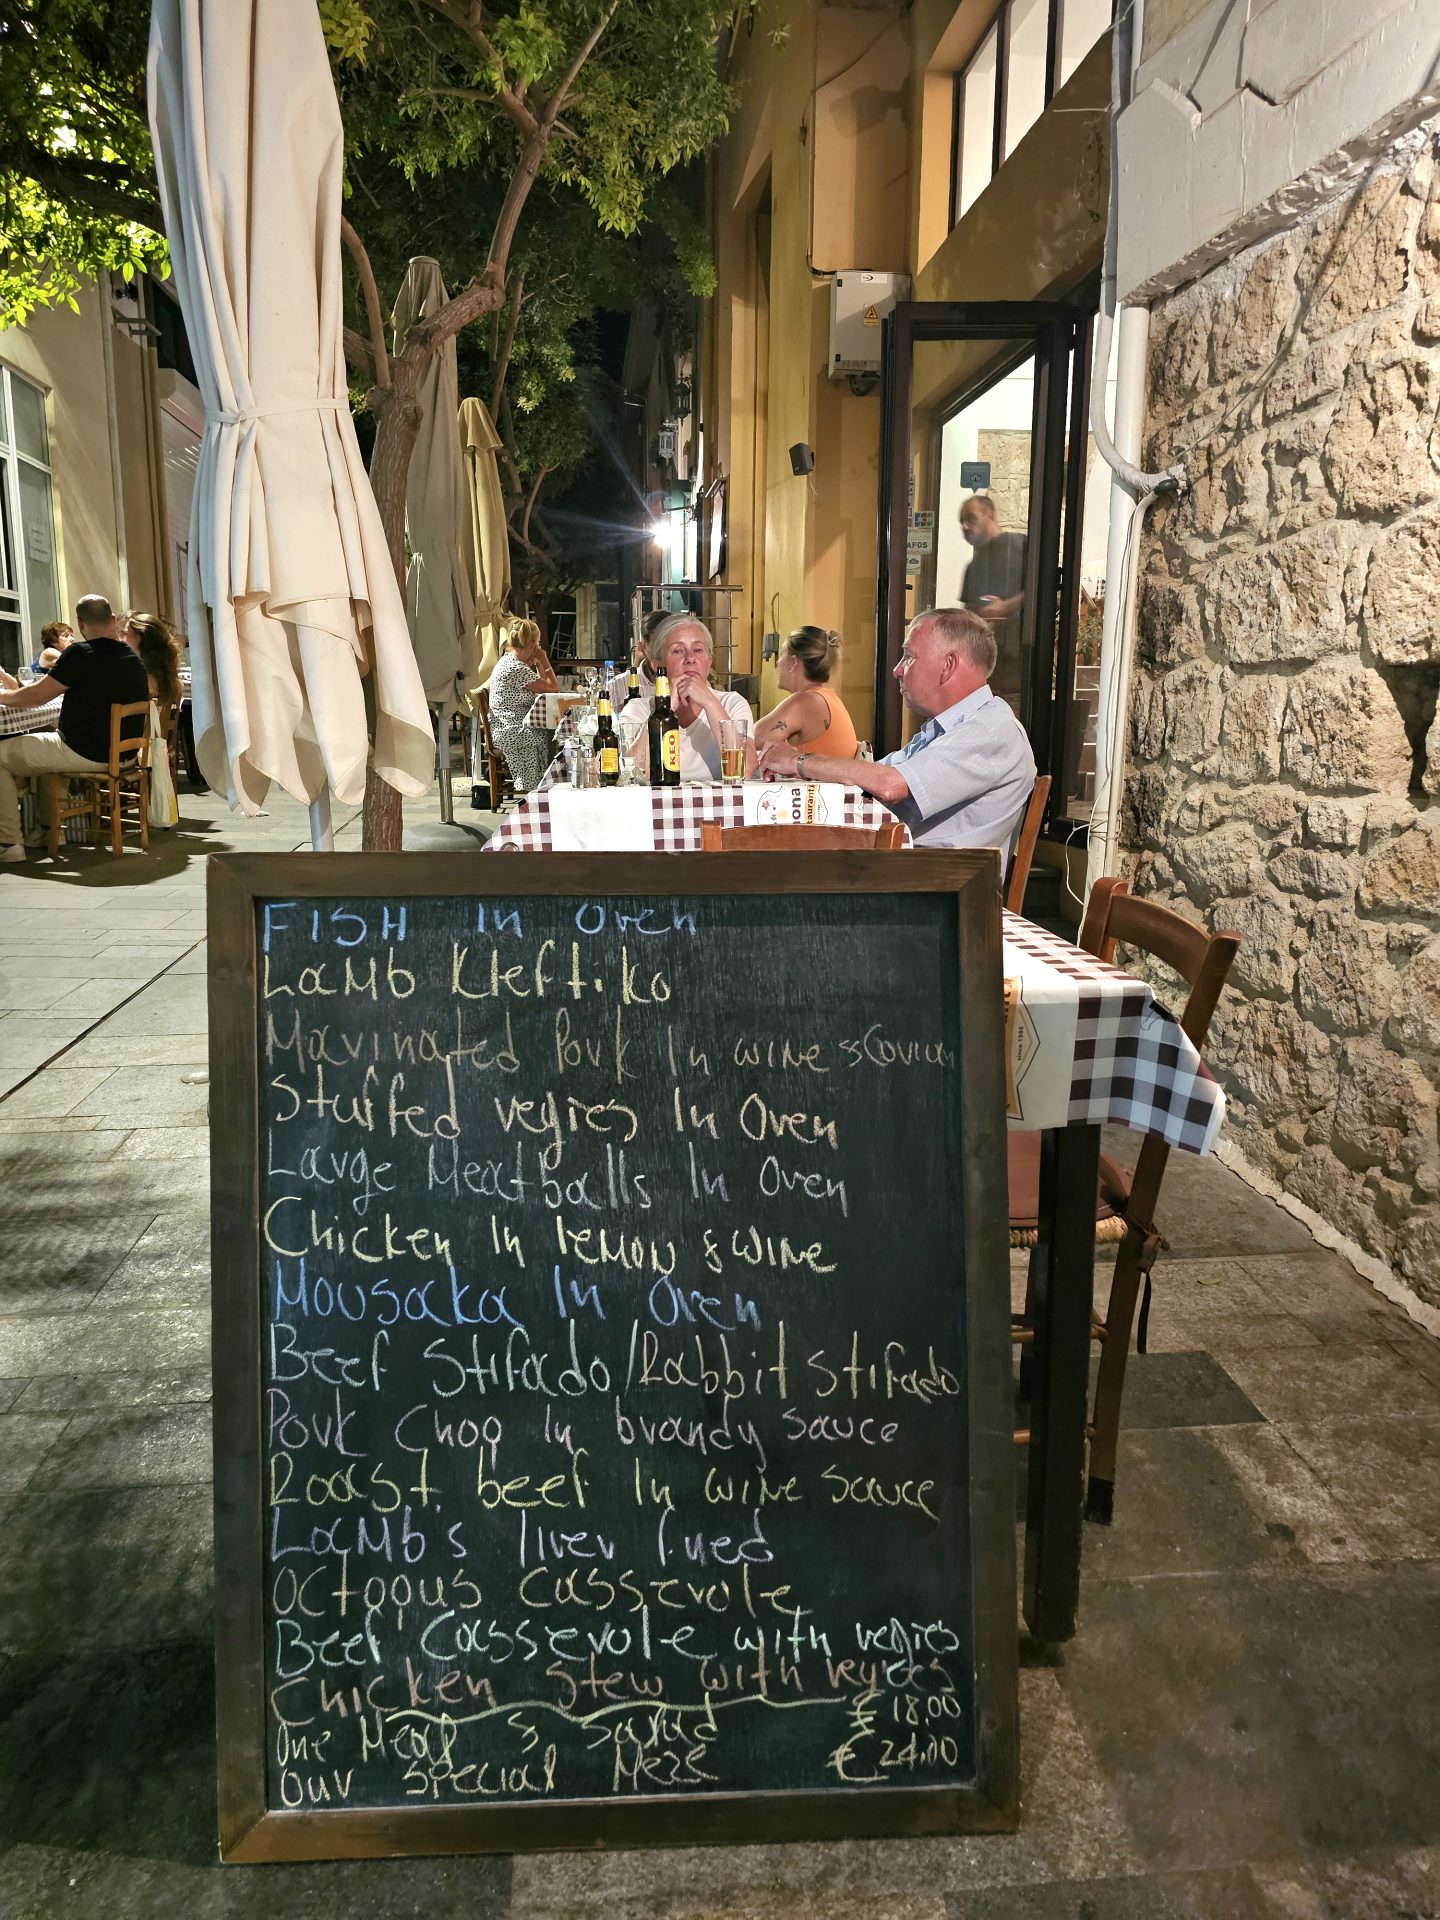 AFOS
KEO
ona
aurant
since 1986
FISH In Oven
Lamb Kleftiko
Marinated Pork In wine & Corian
Stuffed vegies In Oven
Large Meatballs In Oven
Chicken In lemon & wine
Mousaka In Oven
Beef Stifado/Rabbit Stifado
Pork Chop In brandy sauce
Roast beef In wine sauce
Lamb's liver fried
Octopus Casserole
Beef Casserole with vegies
Chicken Stew with vegies
One Meal & salad € 18.00
Our Special Meze € 24.00